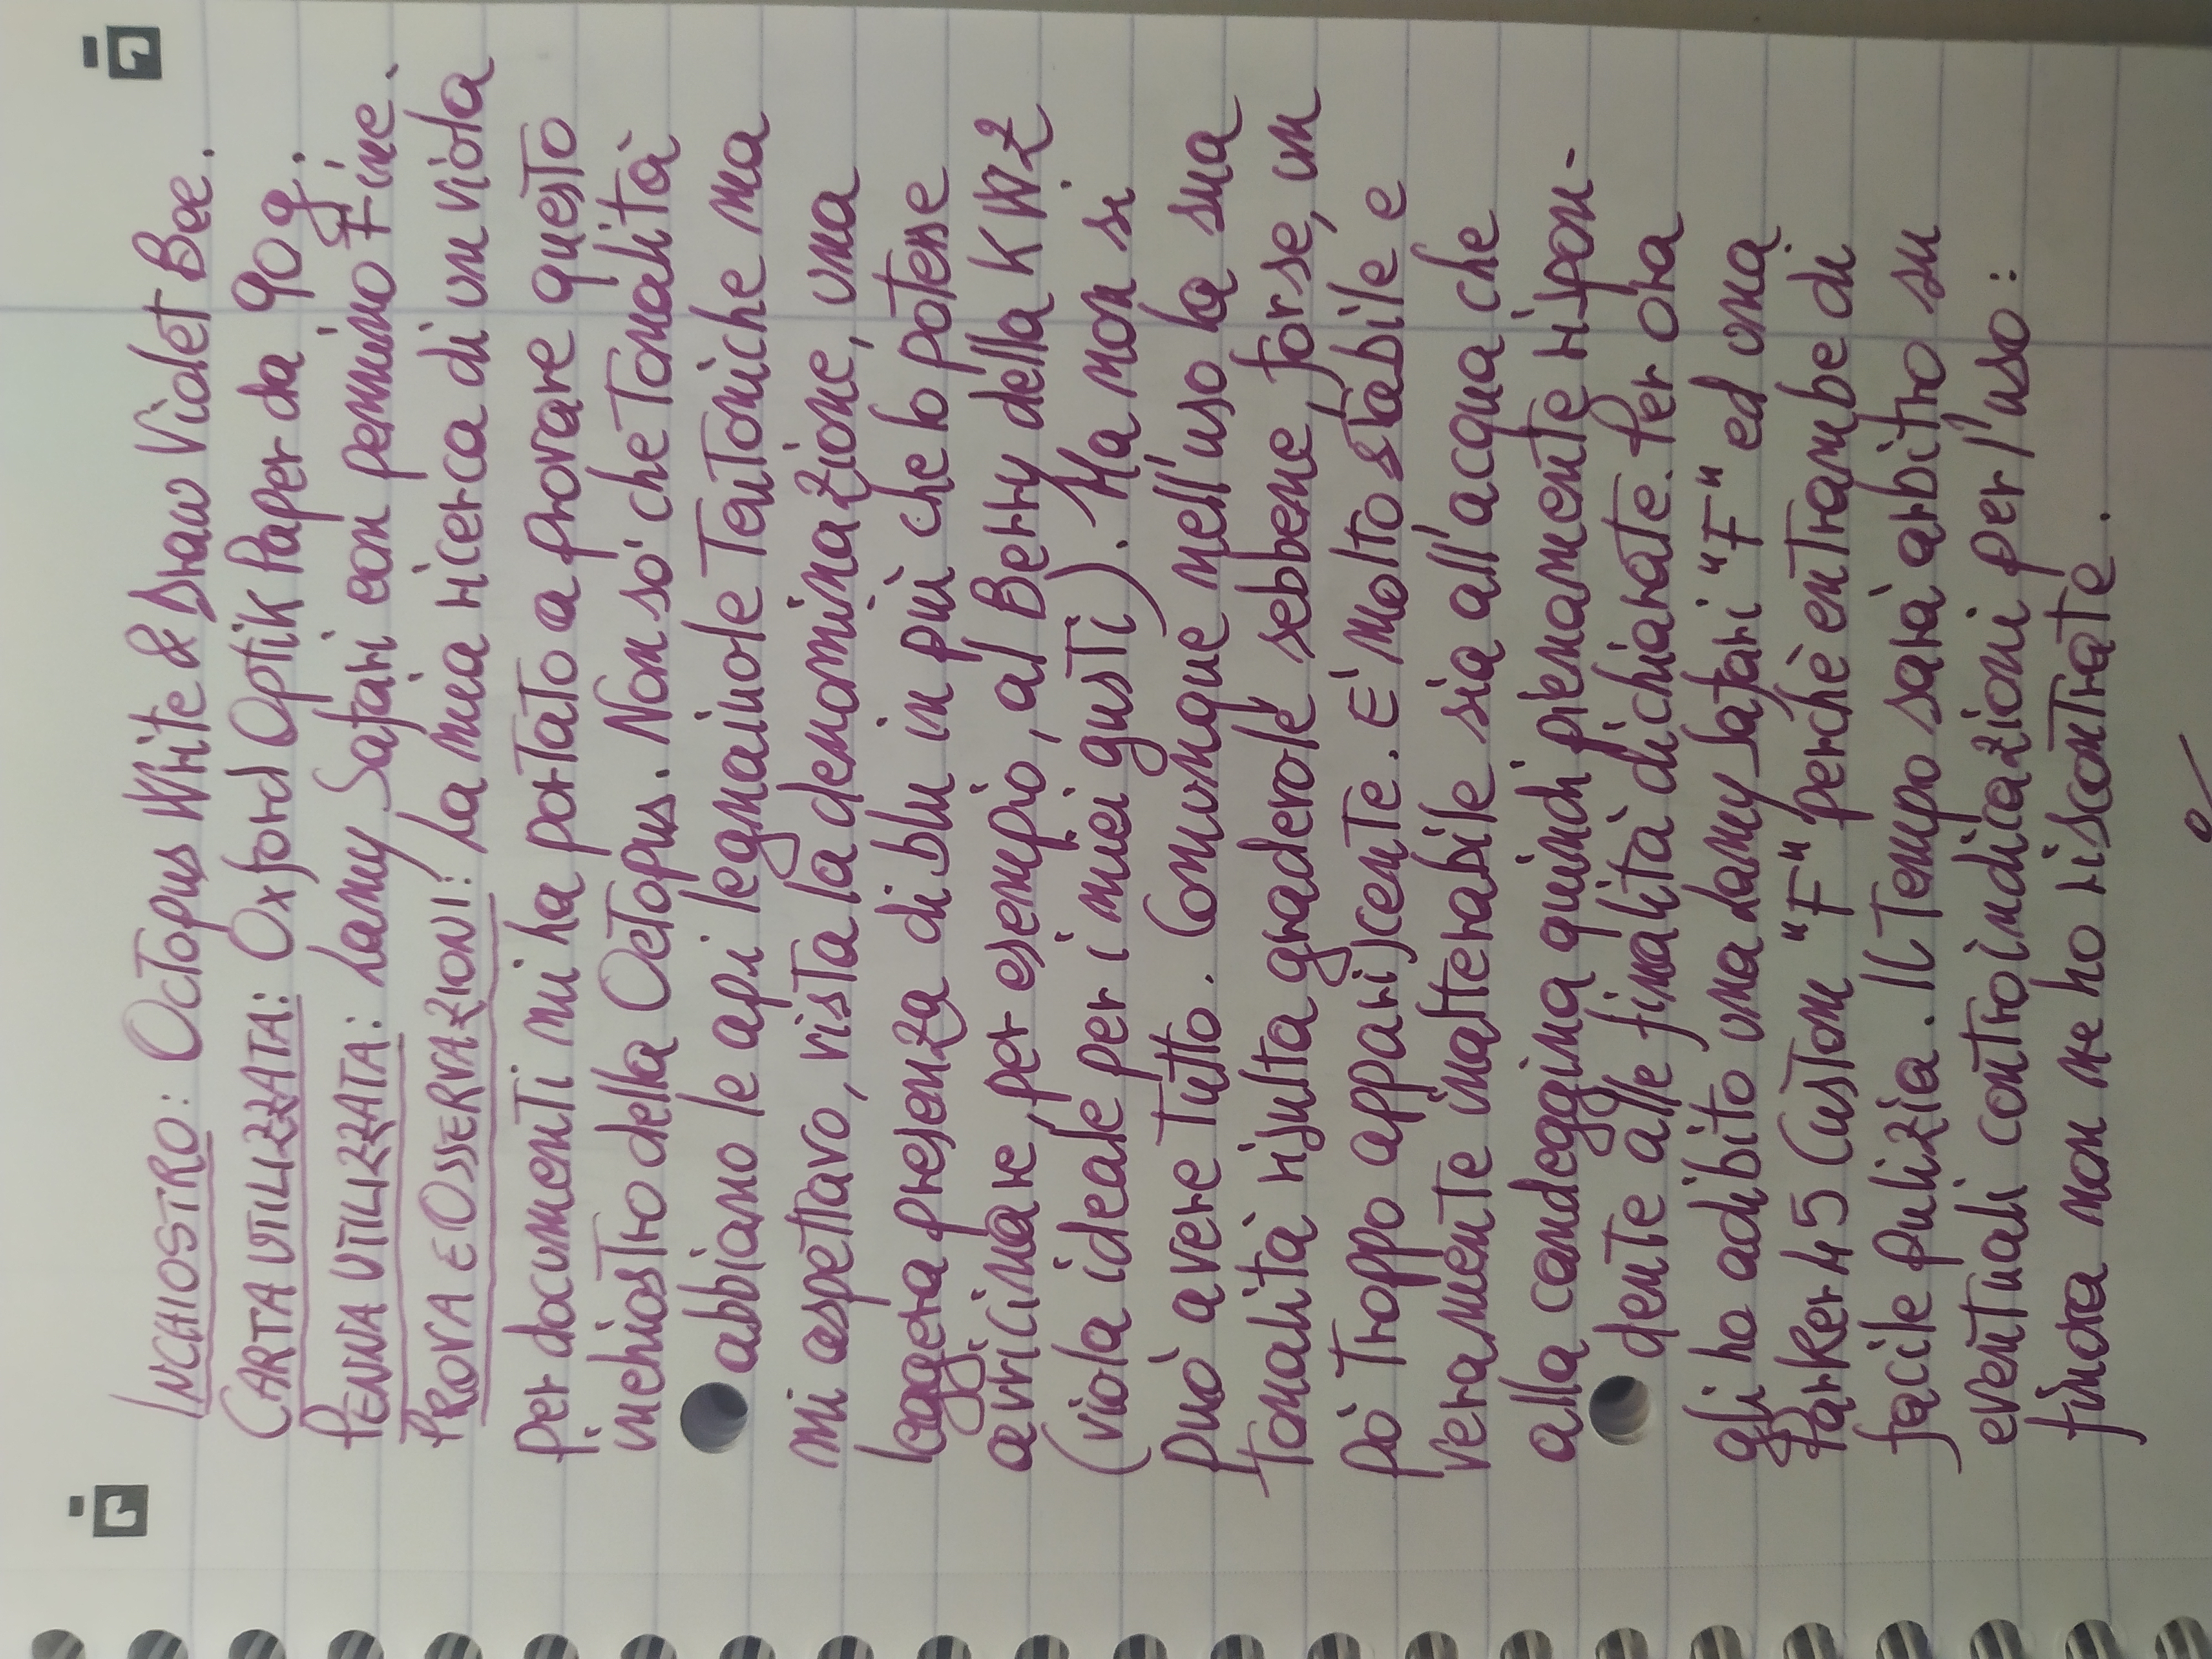 INCHIOSTRO: Octopus Write & Draw Violet Bee.
CARTA UTILIZZATA: Oxford Optik Paper da 90 g.
PENNA UTILIZZATA: Lamy Safari con pennino Fine.
PROVA E OSSERVAZIONI: La mia ricerca di un viola
per documenti mi ha portato a provare questo
inchiostro della Octopus. Non so' che Tonalità
abbiano le api legnaiuole Teutoniche ma
mi aspettavo, vista la denominazione, una
leggera presenza di blu in più che lo potesse
avvicinare, per esempio, al Berry della KWZ
(viola ideale per i miei gusti). Ma non si
può avere tutto. Comunque nell'uso la sua
Tonalità risulta gradevole sebbene, forse, un
pò Troppo appariscente. E' molto stabile e
veramente inalterabile sia all'acqua che
alla candeggina quindi pienamente rispon-
dente alle finalità dichiarate. Per ora
gli ho adibito una Lamy Safari "F" ed una
Parker 45 Custom "F" perchè entrambe di
facile pulizia. Il Tempo sarà arbitro su
eventuali controindicazioni per l'uso:
finora non ne ho riscontrate.